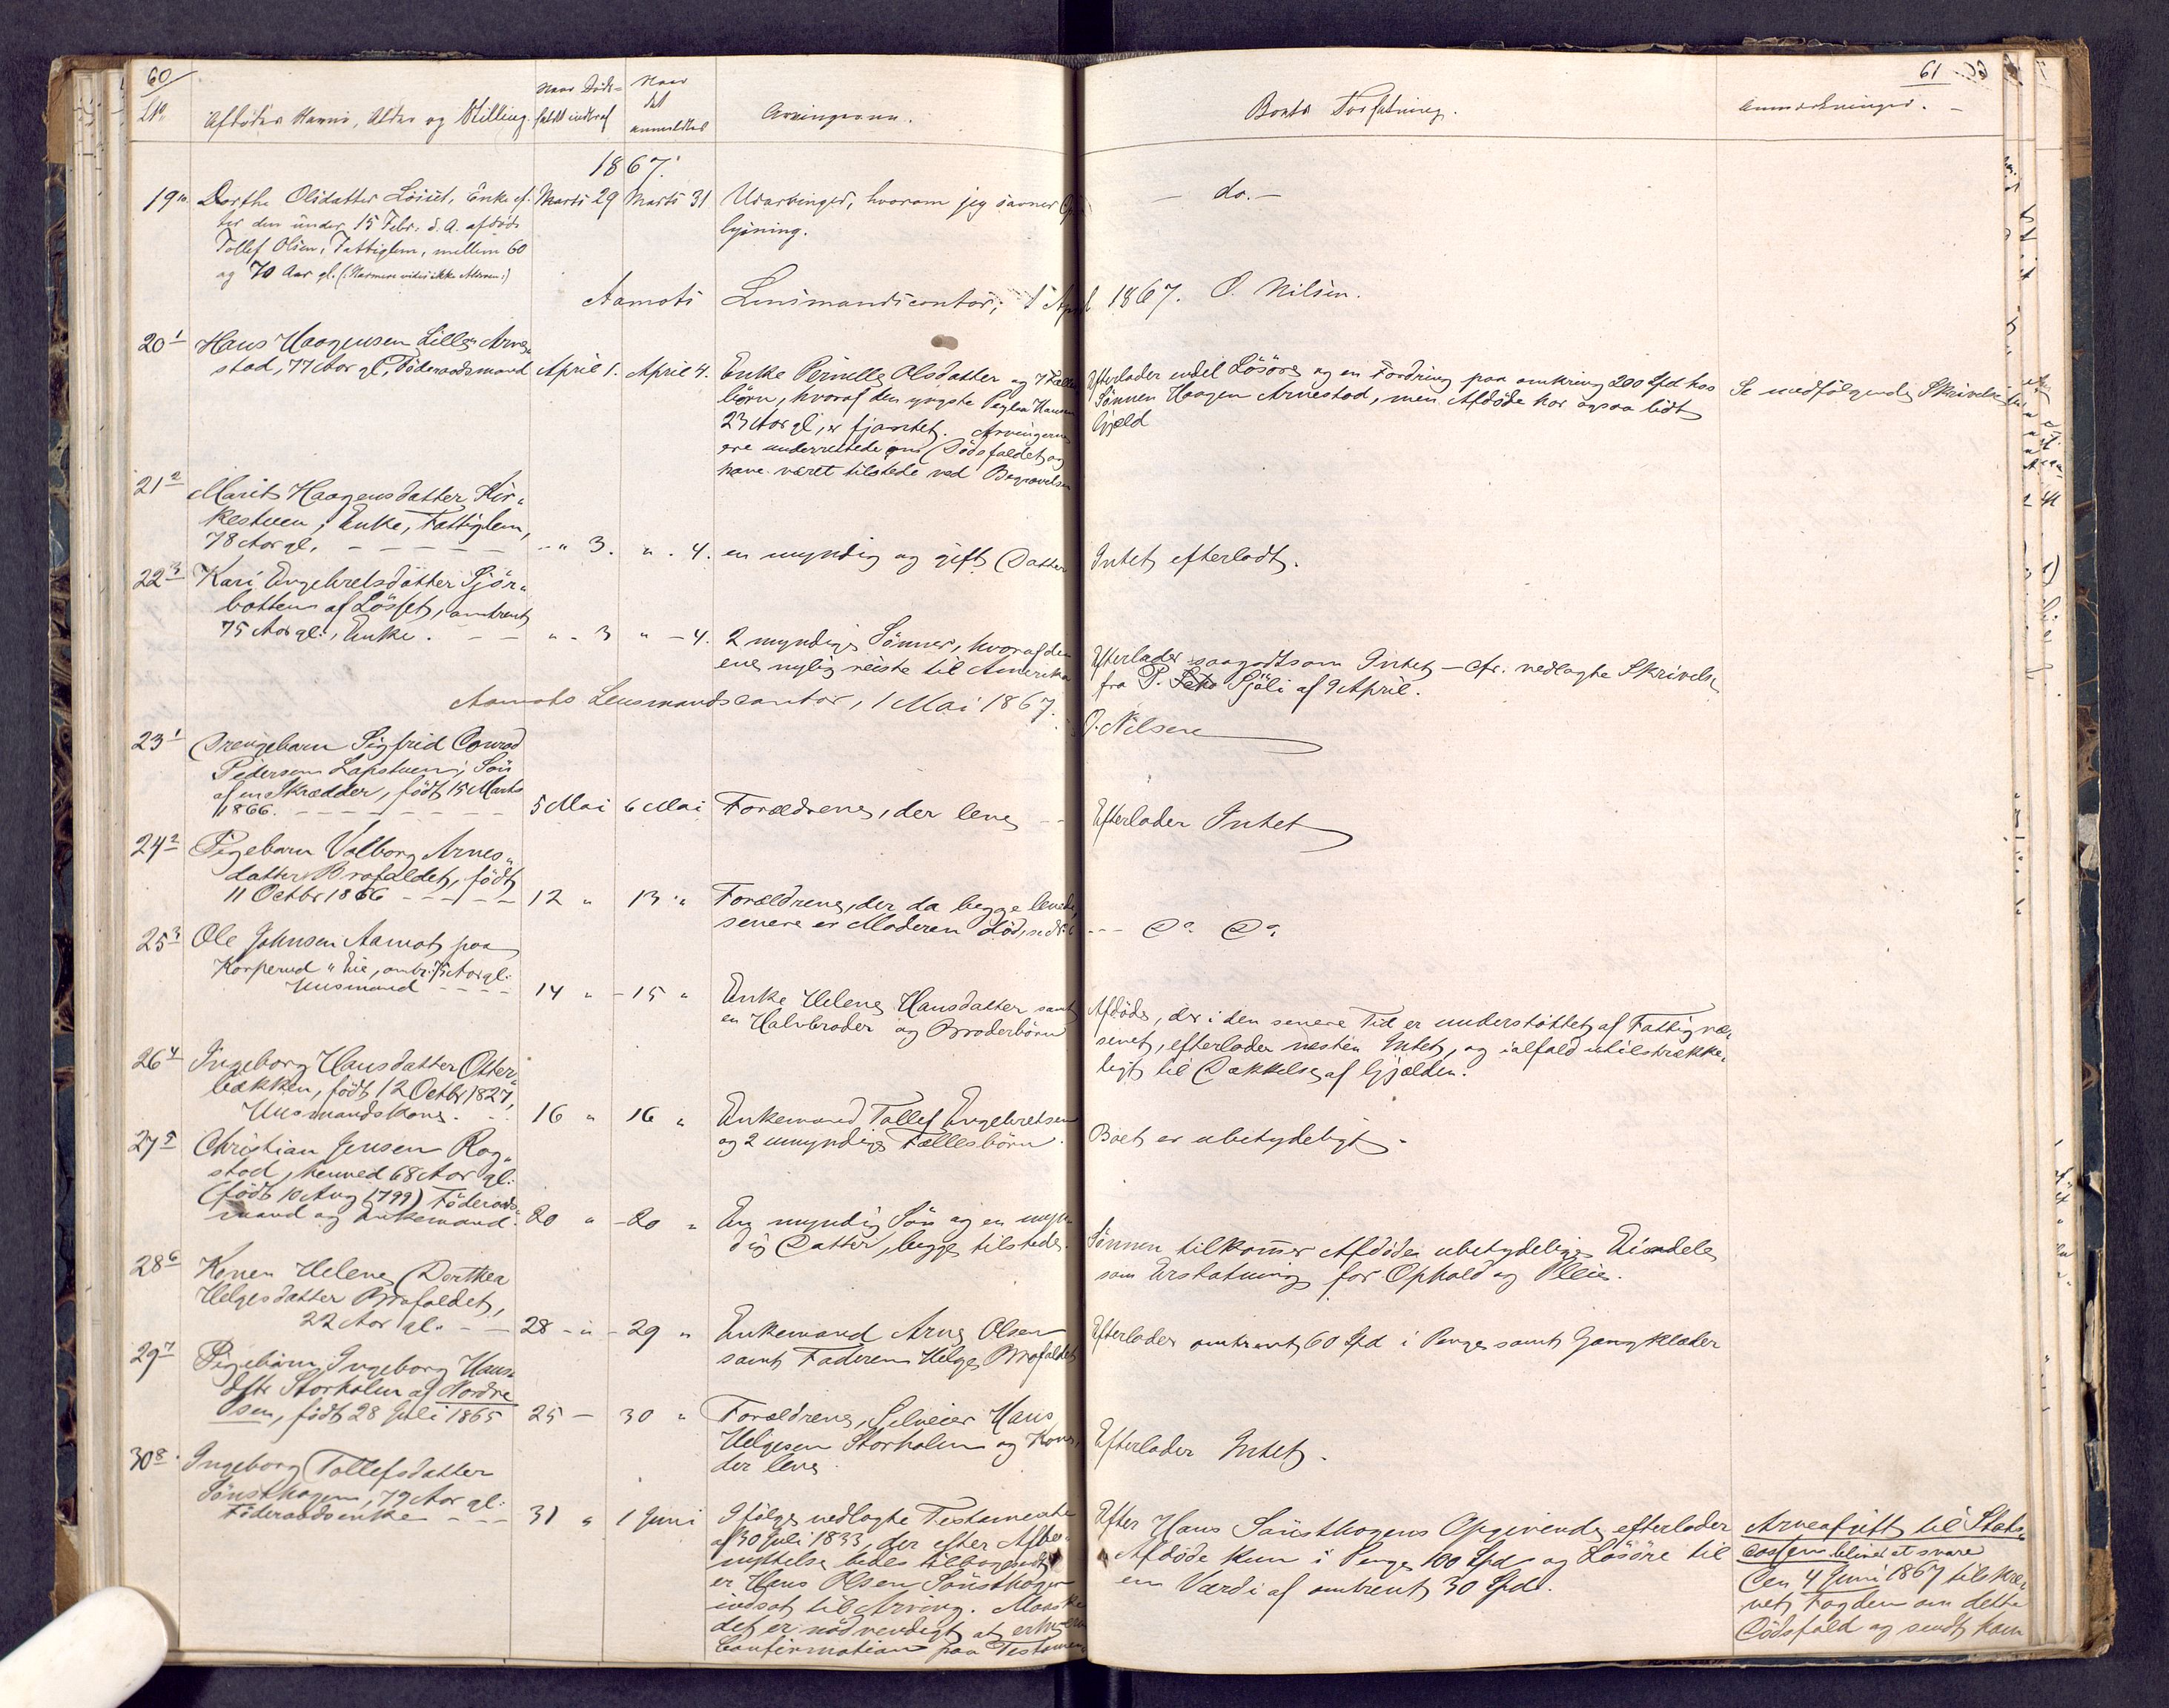 60
No
Afdødes Navn, Alder og Stilling.
Naar Döds-
faldet indtraf
Naar
det
anmeldtes
Arvingerne.
1867.
19
Dorthe Olsdatter Løsset, Enke ef-
ter den under 15 Febr. d. A. afdøde
Tollef Olsen, Fattiglem, mellem 60
og 70 Aar gl. (: Nærmere vides ikke Alderen:)
Marts 29
Marts 31
Udarvinger, hvorom jeg savner Op-
lysning.
Aamots Lensmandscontor, 1 April
20 1
Hans Haagensen Lille Arne-
stad, 77 Aar gl., Föderaadsmand
April 1.
April 4.
Enke Pernille Olsdatter og 7 Fælles
börn, hvoraf den yngste
23 Aar gl., er fjantet. Arvingerne
ere underrettede om Dödsfaldet og
have været tilstede ved Begravelsen
21 2
Marit Haagensdatter Kir-
kestuen, Enke, Fattiglem,
78 Aar gl.
" 3.
" 4.
en myndig og gift Datter
22 3
Kari Engebretsdatter Sjör-
botten af Lösset, omtrent
75 Aar gl., Enke.
" - 3
" - 4.
2 myndige Sönner, hvoraf den
ene nylig reiste til Amerika
Aamots Lensmandscontor, 1 Mai 1867.
23 1
Drengebarn Sigfrid Conrad
Pedersen Lapstuen, Sön
af en Skrædder, födt 15 Marts
1866.
5 Mai
6 Mai
Forældrene, der leve
24 2
Pigebarn Valborg Arnes-
datter Brofaldet, födt
11 Octbr 1866
12 "
13 "
Forældrene, der da begge levede,
senere er Moderen död, se
25 3
Ole Johnsen Aamot paa
Korperud " Eie, omtr. 75 Aar gl.
Husmand
14 "
15 "
Enke Helene Hansdatter samt
en Halvbroder og Broderbörn
26 4
Ingeborg Hansdatter Otter-
bækken, födt 12 Octbr 1827,
Husmandskone.
16 "
16 "
Enkemand Tollef Engebretsen
og 2 umyndige Fællesbörn.
27 5
Christian Jensen Rog-
stad, henved 68 Aar gl.
(födt 10 Aug 1799) Föderaads-
mand og Enkemand.
20 "
20 "
En myndig Sön og en myn-
dig Datter, begge tilstede.
28 6
Konen Helene Dorthea
Helgesdatter Brofaldet,
22 Aar gl.
28 "
29 "
Enkemand Arne Olsen
samt Faderen Helge Brofaldet
29 7
Pigebarn Ingeborg Hans-
dttr Storholm af Nordre
Osen, födt 28 Juli 1865
25 -
30 "
Forældrene, Selveier Hans
Helgesen Storholm og Kone,
der leve
30 8
Ingeborg Tollefsdatter
Sönsthagen, 79 Aar gl.
Föderaadsenke
31 "
1 Juni
Ifölge vedlagte Testamente
af 30 Juli 1833, der efter Afbe-
nyttelse bedes tilbagesendt
er Hans Olsen Sönsthagen
indsat til Arving. Maaske
det er nödvendigt at erhverve
Confirmation paa Testamen-
61
Boets Forfatning.
Anmærkninger.
- do. -
1867. O. Nilsen.
Efterlader endel Lösöre og en Fordring paa omkring 200 Spd hos
Sönnen Haagen Arnestad, men Afdöde har ogsaa lidt
Gjæld
Se medfölgende Skrivelse
Intet efterladt.
Efterlader saagodtsom Intet - cfr. vedlagte Skrivelse
fra P. Sjöli af 9 April.
O. Nilsen
Efterlader Intet
Do Do
Afdöde, der i den senere Tid er understöttet af Fattigvæ-
senet, efterlader næsten Intet, og ialfald utilstrække-
ligt til Dækkelse af Gjælden.
Boet er ubetydeligt.
Sönnen tilkommer Afdödes ubetydelige Eiendele
som Erstatning for Ophold og Pleie.
Efterlader omtrent 60 Spd i Penge samt Gangklæder
Efterlader Intet.
Efter Hans Sönsthagens Opgivende efterlader
Afdöde kun i Penge 100 Spd og Lösöre til
en Værdi af omtrent 30 Spd.
Arveafgift til Stats-
cassen bliver at svare
Den 4 Juni 1867 tilskre-
vet Fogden om dette
Dödsfald og sendt ham